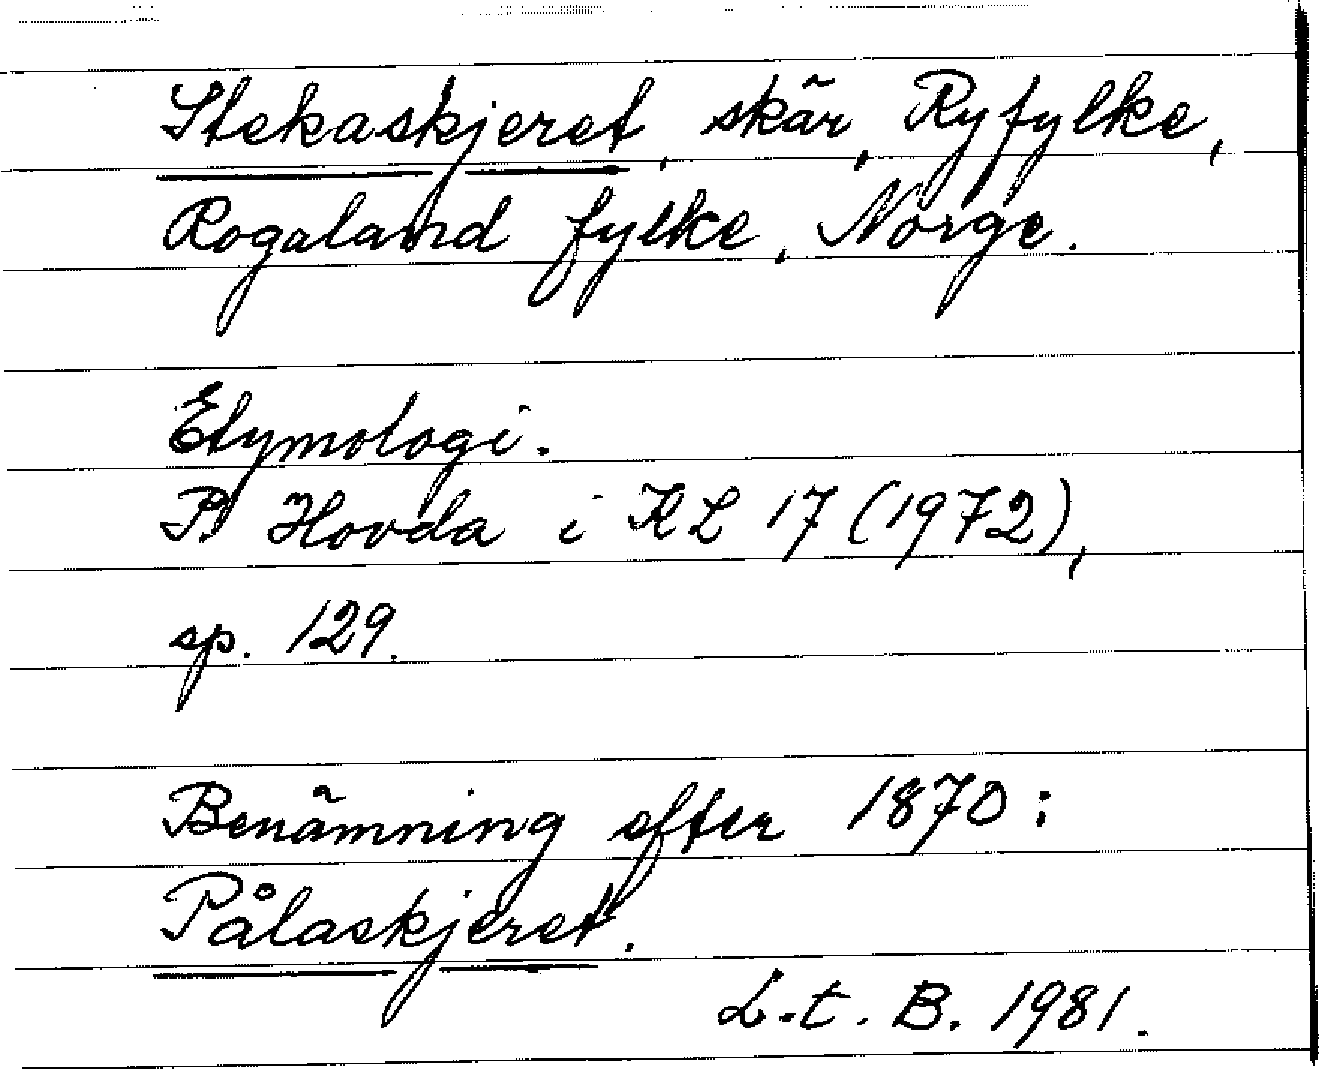 Stekaskjeret, skär, Ryfylke,
Rogaland fylke, Norge.
Etymologi.
P Hovda i KL 17 (1972),
sp. 129.
Benämning efter 1870:
Pålaskjeret.
L.t. B. 1981.